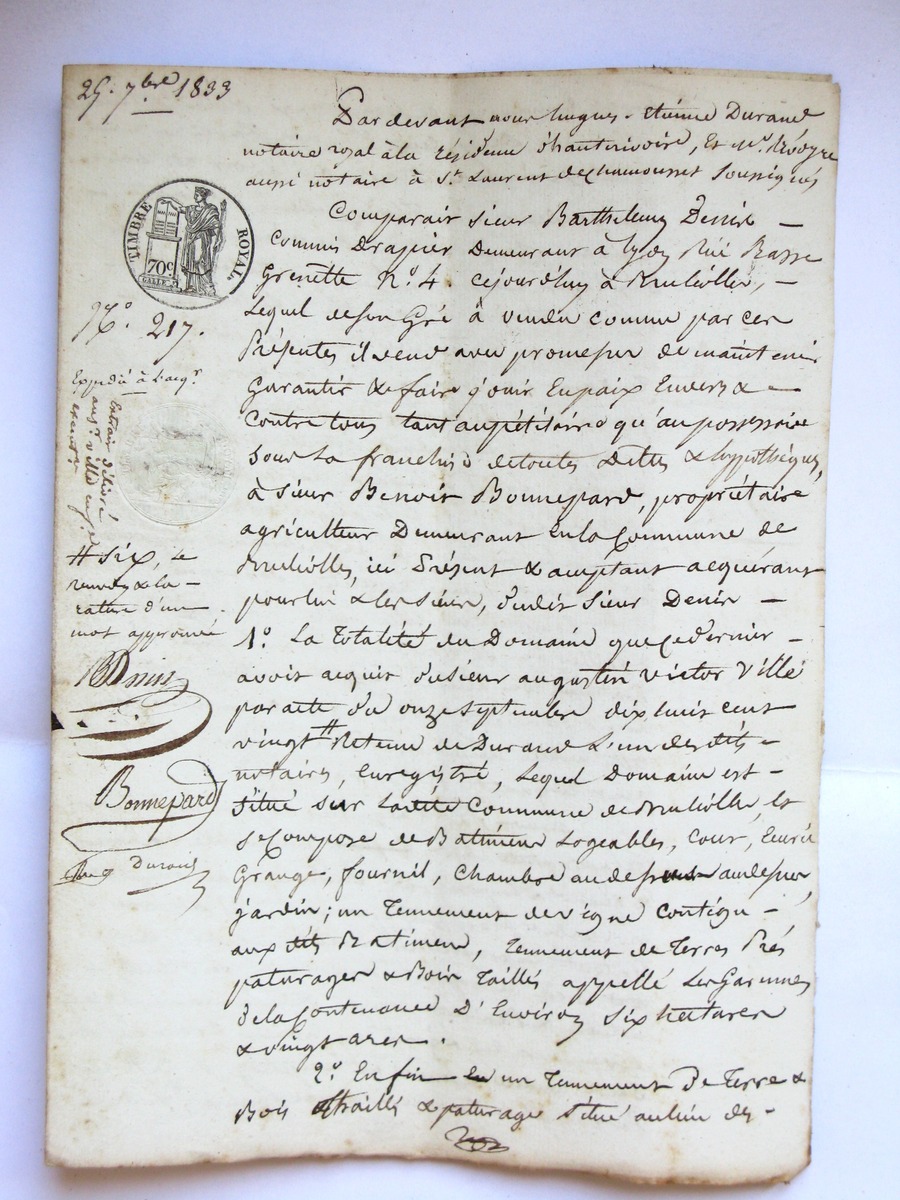 25. 7bre 1833
Pardevant nous hugues - étienne Durand
notaire royal à la résidence d'hauterivoire, Et Mr. Révoyre
aussi notaire à St. Laurent de chamousset soussignés
TIMBRE ROYAL.
70c
Comparait sieur Barthelemy Denis —
Commis Drapier Demeurant à lyon Rue Basse
Grenette n.o 4. cejourd'huy à Brullioles, —
Lequel de son Gré à vendu comme par ces
Présentes il vend avec promesse de maintenir
Garantir & faire jouir En paix Envers & —
Contre tous tant au pétitoire qu'au possessoire
sous la franchise de toutes Dettes & hypothèques,
à sieur Benoit Bonnepard, propriétaire
agriculteur Demeurant en la Commune de
Brullioles, ici Présent & acceptant acquérant
pour lui & les siens, dudit sieur Denis —
1.o La Totalité du Domaine que ce dernier —
avoit acquit du sieur augustin victor Ville
par acte du onze septembre dix huit cent
vingt # Retenu de Durand L'un desdits —
notaires, Enregistré, Lequel Domaine est —
situé sur ladite Commune de Brullioles, et
se Compose de Batimens Logeables, Cour, Ecurie
Grange, fournil, Chambre au dessus
jardin; un Tennement de vigne Contigu —
aux dits Batimens, Tennement de Terres Prés
paturages & Bois Taillis appellé Les Garennes
de la Contenance D'Environ six hectares
& vingt ares.
2.o Enfin un Tennement De Terre &
Bois taillis & paturage situé au lieu de -
N.o 217.
Expédié à l'acqr.
Extrait délivré
au sr. ville
# six, Le
renvoy & la —
rature d'un
mot approuvé
BDenis
Bonnepard
Durand